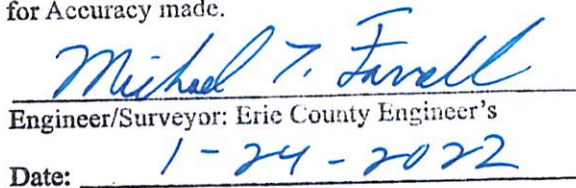 for Accuracy made.
Michael T. Farrell
Engineer/Surveyor: Erie County Engineer's
Date: 1-24-2022